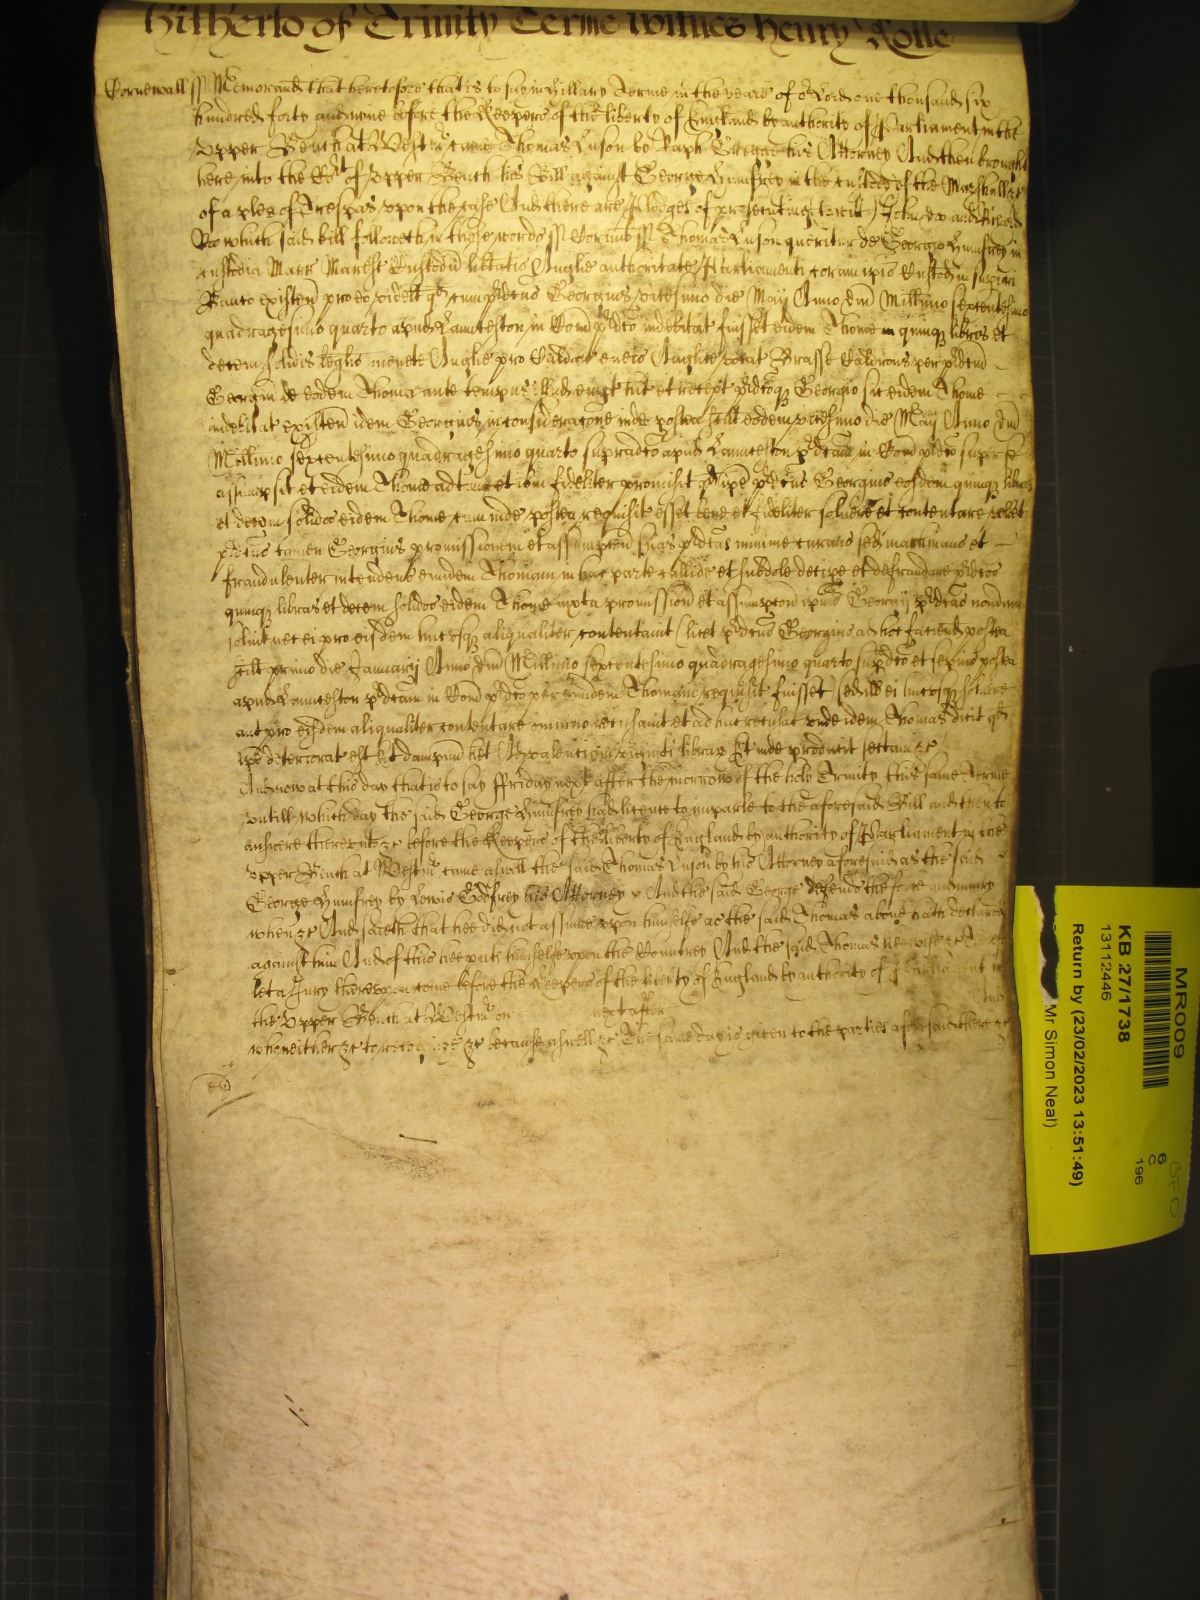 hitherto of Trinity Terme witnes Henry Rolle
Cornewall ss Memorand that heretofore that is to say in Hillary Terme in the yeare of or Lord one thousand six
hundred forty and nine before the Keepers of the liberty of England by authority of Parliament in the
Upper Bench at Westmr came Thomas Luson by Raph his Attorney And then brought
here into the Cort of Upper Bench his Bill against George Humfrey in the custody of the Marshall &c
of a plea of Trespas upon the case And there are pledges of prosecuting to witt John doe and Richard
Roe which said bill followeth in these words ss Cornub ss Thomas Luson queritur de Georgio Humfrey in
custodia Marr Maresc Custodu libtatis Anglie authoritate Parliamenti coram ipis Custod in supiori
Banco existen pro eo videlt qd cum pdcus Georgius vicesimo die Maij Anno dni Millimo sexcentesimo
quadragesimo quarto apud Launceston in Com pdco indebitat fuisset eidem Thome in quinqz libris et
decem solidis legalis monete Anglie pro Caldar eneis Anglice vocat Brasse Caldrons per pdcum
Georgiu de eodem Thoma ante tempus illud empt hit et recept pdcoqz Georgio sic eidem Thome
indebitat existen idem Georgius in consideracone inde postea scilt eodem vicesimo die Maij Anno dni
Millimo sexcentesimo quadragesimo quarto supradco apud Launceston pdcam in Com pdco super se
assumpsit et eidem Thome adtunc et ibm fideliter promisit qd ipe pdcus Georgius eosdem quinqz libras
et decem solidos eidem Thome cum inde postea requisit esset bene et fideliter solvere et contentare vellet
pdcus tamen Georgius promissionem et assumpcon suas pdcas minime curans sed machinans et
fraudulenter intendens eundem Thomam in hac parte callide et subdole decipe et defraudare pdcas
quinqz libras et decem solidos eidem Thome juxta promission et assumpcon ipius Georgij pdcas nondum
solvit nec ei pro eisdem hucusqz aliqualiter contentavit licet pdcus Georgius ad hoc faciend postea
scilt primo die Januarij Anno dni Millimo sexcentesimo quadragesimo quarto supdco et sepius postea
apud Launceston pdcam in Com pdco per eundem Thomam requisit fuisset sed ill ei hucusqz solvere
aut pro eisdem aliqualiter contentare omnino recusavit et adhuc recusat unde idem Thomas dicit qd
ipe deteriorat est et dampnu het Ad valenciam viginti librar Et inde producit sectam &c
And now at this day that is to say ffriday next after the morrow of the holy Trinity this same Terme
untill which day the said George Humfrey had licence to imparle to the aforesaid Bill and then to
answere thereunto &c before the Keepers of the liberty of England by authority of Parliament in the
Upper Bench at Westmr came aswell the said Thomas Luson by his Attorney aforesaid as the said
George Humfrey by Lewis Godfrey his Attorney And the said George defends the force and injury
when &c And saieth that hee did not assume upon himselfe as the said Thomas above hath declared
against him And of this hee puts himselfe upon the Countrey And the said Thomas likewise &c
let a Jury thereupon come before the Keepers of the liberty of England by authority of Parliament in
the Upper Bench at Westmr on next after
who neither &c to recognize &c because aswell &c The same day is given to the parties aforesaid there &c
MR009
KB 27/1738
13112446
Return by (23/02/2023 13:51:49)
Mr Simon Neal)
6
C
196